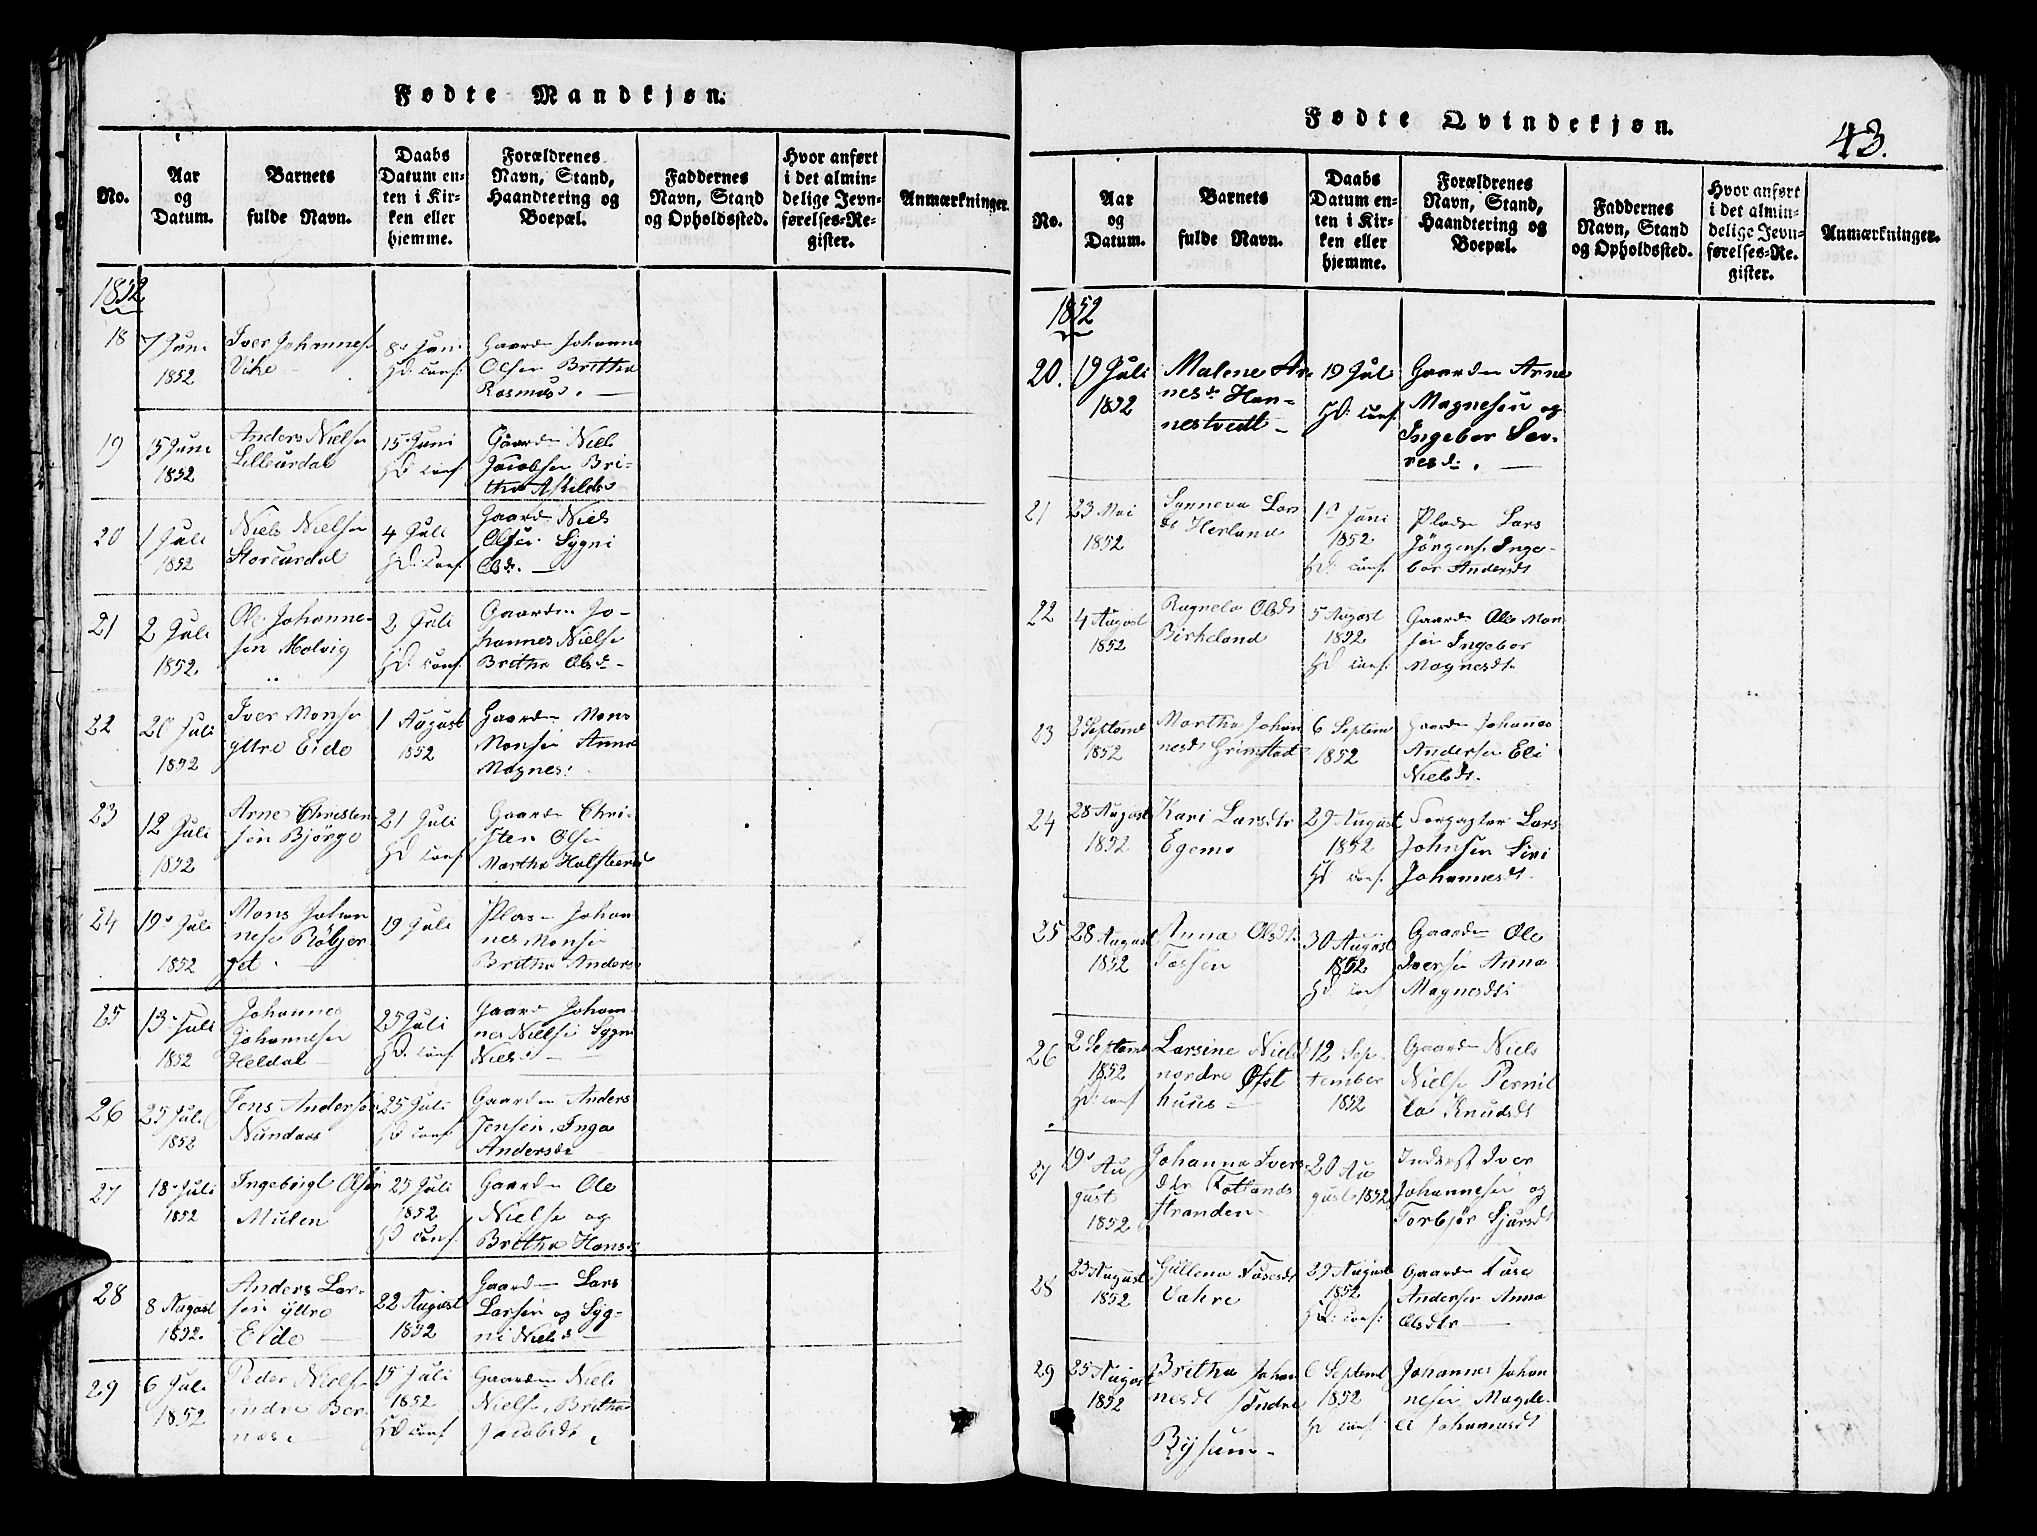 Fødte Mandkjøn.
No.
Aar
og
Datum.
Barnets
fulde Navn.
Daabs
Datum en-
ten i Kir-
ken eller
hjemme.
Forældrenes
Navn, Stand,
Haandtering og
Boepæl.
Faddernes
Navn, Stand
og Opholdssted.
Hvor anført
i det almin-
delige Jevn-
førelses-Re-
gister.
Anmærkninger.
1852
18
7 Juni
1852
Iver Johannes
Vike
8de Juni
HD. conf.
Gaardm Johanne
Olsen Britha
Rasmusd.
19
5 Juni
1852
Anders Nielse
Lilleurdal
15 Juni
HD conf
Gaardm Niels
Jacobsen Bri-
tha Askilds
20
1 Juli
1852
Niels Nielsen
Storeurdal
4 Juli
HD: conf
Gaardm Niels
Olsen Sygni
Olsd.
21
2 Juli
1852.
Ole Johanne-
sen Molvig
2 Juli
HD. conf.
Gaardm Jo-
hannes Nielse
Britha Olsd
22
20 Juli
1852
Iver Monse
yttre Eide
1 August
1852
Gaardm Mons
Monsen Anna
Magnes:
23
12 Juli
1852
Arne Christen
sen Bjørge
21 Juli
HD conf
Gaardm Chri-
sten Olse
Martha
24
19 Juli
1852
Mons Johan
nesen
19 Juli
Plas Johan
nes Monse
Britha Anders
25
13 Juli
1852
Johannes
Johannesen
Heldal
25 Juli
HD: conf
Gaard Johan-
nes Nielse Sygni
Niels
26
25 Juli
1852
Jens Anderse
Nundaas
25 Juli
HD conf
Gaardm Anders
Jensen, Inga
Andersdr
27
18 Juli
1852
Ingebrigt Olsen
Mulen
25 Juli
1852
HD conf
Gaardm Ole
Nielse og
Britha Hans
28
8 August
1852.
Anders Lar-
sen yttre
Eide
22 August
1852
Gaardm Lars
Larsen og Syg-
ni Nielsd
29
6 Juli
1852
Peder Nielse
indre Ber-
nes
15 Juli
1852
HD conf
Gaardm Niels
Nielse, Britha
Jacobsdr
Fødte Qvindekjøn.
43.
No.
Aar
og
Datum.
Barnets
fulde Navn.
Daabs
Datum en-
ten i Kir-
ken eller
hjemme.
Forældrenes
Navn, Stand,
Haandtering og
Boepæl.
Faddernes
Navn, Stand
og Opholdssted.
Hvor anført
i det almin-
delige Jevn-
førelses-Re-
gister.
Anmærkninger.
1852
20.
19 Juli
1852
Malene Ar
nesdr Han-
nestvedt
19 Jul
HD: conf
Gaardm Arne
Magnesen og
Ingebor Sev-
resd.
21
23 Mai
1852
Synneva Lar
dr Herland
1st Juni
1852
HD: conf
Plads Lars
Jørgens. Inge-
bor Andersdt
22
4 August
1852
Ragnela Olsdt
Birkeland
5 August
1852
HD conf:
Gaardm Ole Mon
sen Ingebor
Magnesdt
23
3 Septemb
1852
Martha Johan
nesdt Grimstad
6 Septem
1852
Gaardm Johannes
Andersen Eli
Nielsdt.
24
28 August
1852
Kari Larsdtr
Egemo
29 August
1852
HD conf.
Forpagter Lars
Johnsen Siri
Johannesdt.
25
28 August
1852
Anna Olsdt.
Tossen
30 August
1852
HD. conf
Gaardm Ole
Iversen Anna
Magnesdt
26
2 Septemb
1852
HD: conf
Larsine Nielsd
nordre Øst
huus
12 Sep-
tember
1852
Gaardm Niels
Nielse Pernil
la Knudsdt
27
19 Au
gust
1852
Johanna Ivers
dtr Totlands
stranden
20 Au
gust 1852
Inderst Iver
Johannesen og
Torbjør Sjursdt
28
23 August
1852
Gullena
Vahre
29 August
1852
HD: conf:
Gaardm
Andersen Anna
Olsdtr
29
25 August
1852
Britha Johan
nesdt Søndre
Bysum
6 Septemb
1852
HD conf
Johannes Johan
nesen Magde-
li Johannesdt